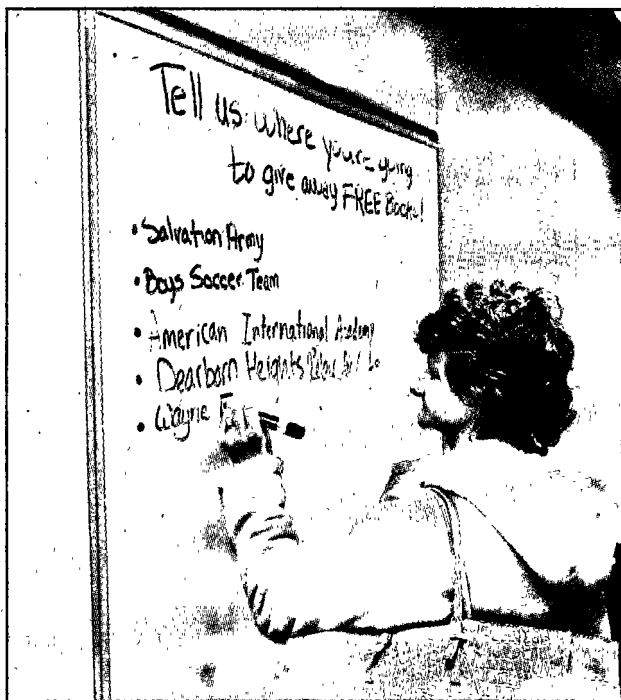 Tell us where you're going
to give away FREE Books!
• Salvation Army
• Boys Soccer Team
• American International Academy
• Dearborn Heights
• Wayne